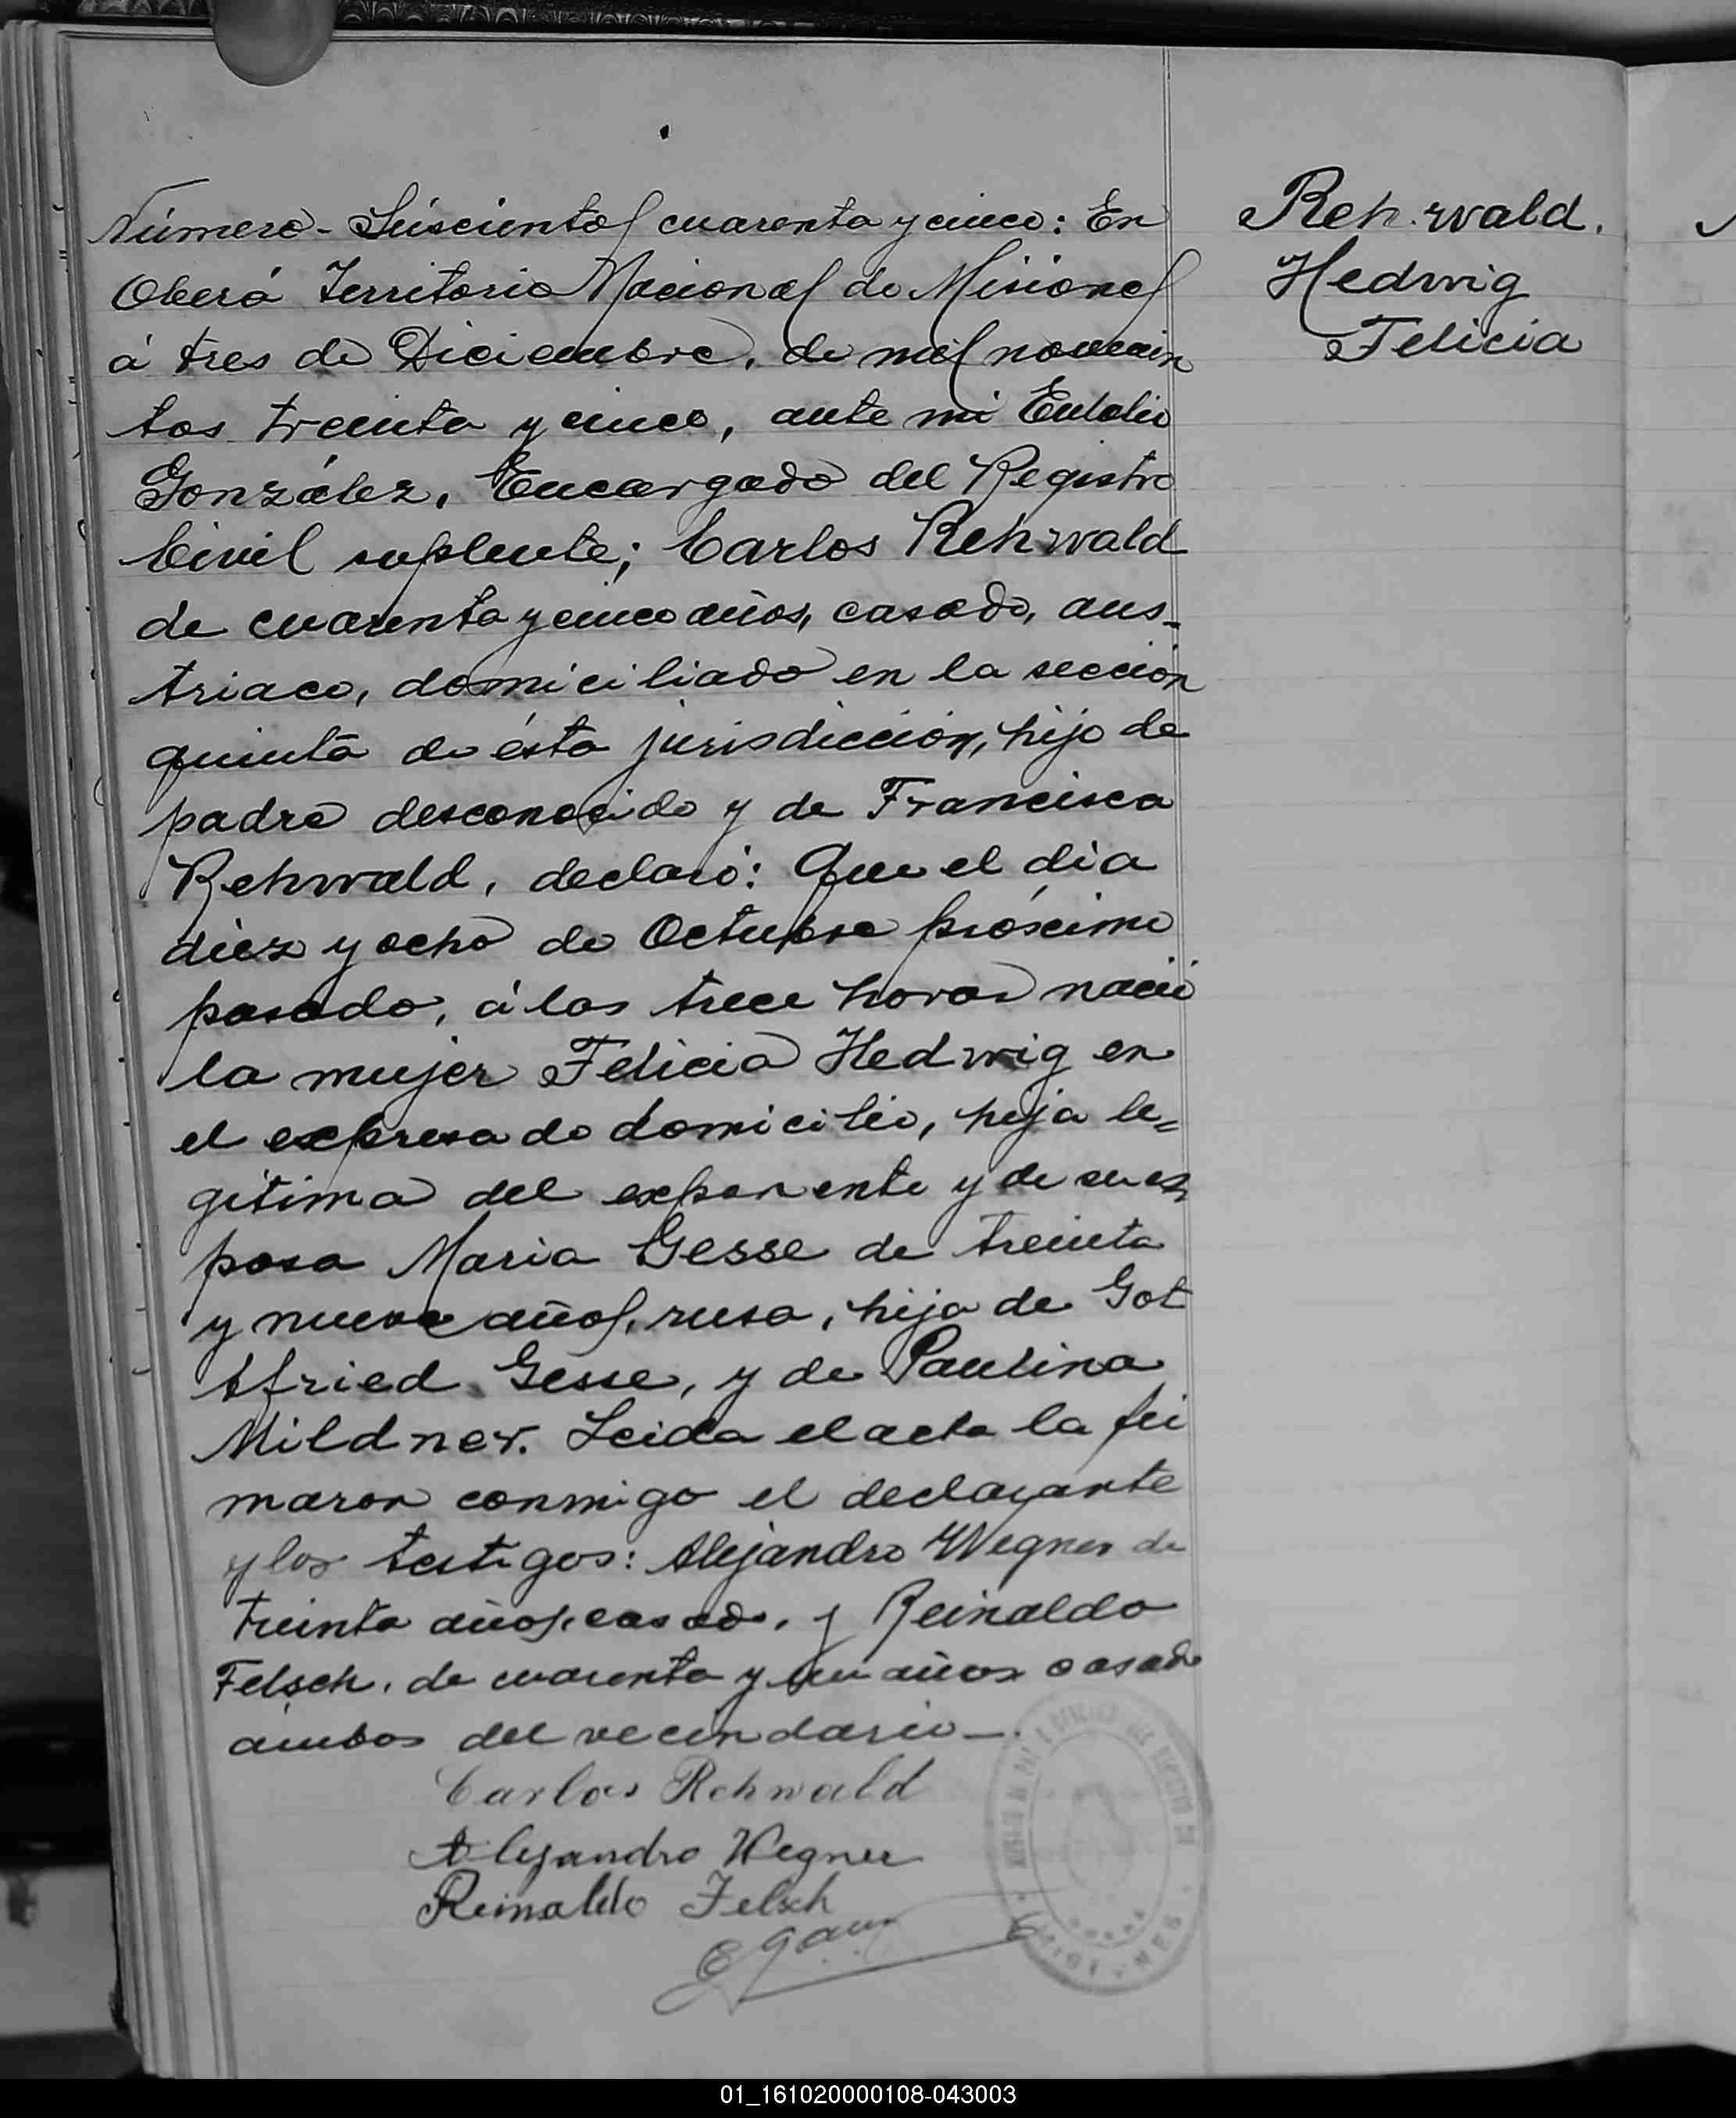 Número - Seiscientos cuarenta y cinco: En
Oberá Territorio Nacional de Misiones
á tres de Diciembre, de mil novecien
tos treinta y cinco, ante mi Eulalio
González, Encargado del Registro
Civil suplente; Carlos Rehwald
de cuarenta y cinco años, casado, aus-
triaco, domiciliado en la sección
quinta de ésta jurisdicción, hijo de
padre desconocido y de Francisca
Rehwald, declaró: Que el dia
diez y ocho de Octubre próximo
pasado, á las trece horas nació
la mujer Felicia Hedwig en
el expresado domicilio, hija le=
gitima del exponente y de su es
posa Maria Gesse de treinta
y nueve años, rusa, hija de Got
tfried Gesse, y de Paulina
Mildner. Leida el acta la fir
maron conmigo el declarante
y los testigos: Alejandro Wegner de
treinta años, casado, y Reinaldo
Felsch, de cuarenta y un años casado
ámbos del vecindario-.
Carlos Rehwald
Alejandro Wegner
Reinaldo Felsch
Rehwald.
Hedwig
Felicia
01_161020000108-043003